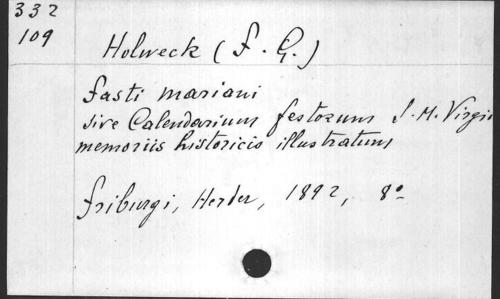 332
109
Holweck (F. G.)
Fasti mariani
sive Calendarium festorum S. M. Virgin
memoriis historicis illustratum
Friburgi, Herder, 1892, 8º